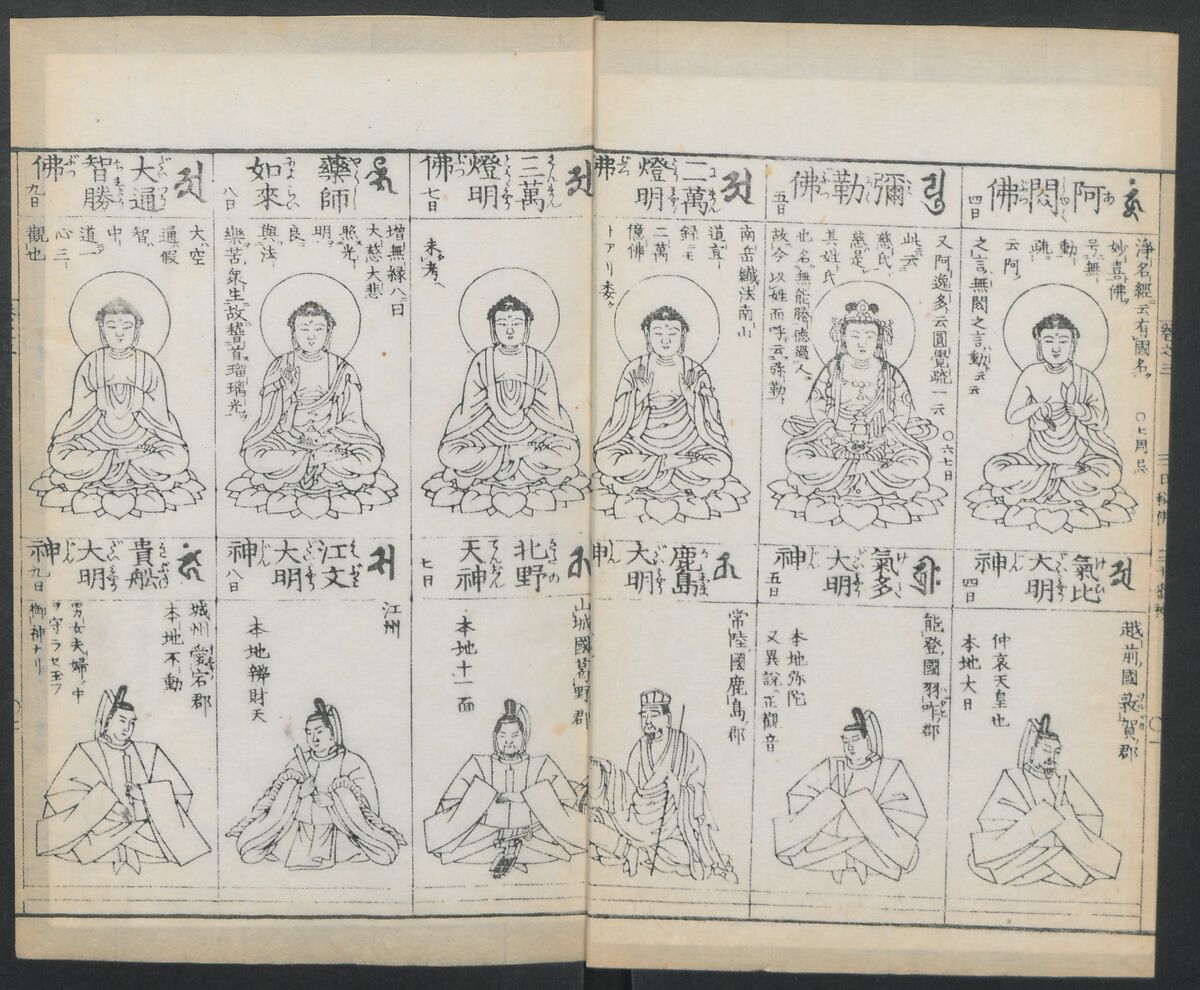 阿閦佛
四日
淨名經云有國名
妙喜佛
号無
動
疏
云阿
之言無閦之言動云云
〇七周忌
彌勒佛
五日
又阿逸多云圓覺疏一云
此云
慈氏
慈是
其姓氏
也名無能勝德過人
故今以姓而呼云弥勒
〇六七日
二萬燈明佛
南岳懺法南山
道宣
録ニモ
二萬
億佛
トアリ委ク
三萬燈明佛
七日
未考
藥師如來
八日
增無緣八日
大慈大悲
照光
明
良
與法
樂苦衆生故稽首瑠璃光
大通智勝佛
九日
大空
通假
智
中
道一
心三
觀也
氣比大明神
四日
越前國敦賀郡
仲哀天皇也
本地大日
氣多大明神
五日
能登國羽咋郡
本地弥陀
又異說正觀音
鹿島大明神
常陸國鹿島郡
北野天神
七日
山城國葛野郡
本地十一面
江文大明神
八日
江州
本地辨財天
貴舩大明神
九日
城州愛宕郡
本地不動
男女夫婦ノ中
ヲ守ラセ玉フ
御神ナリ
卷之三